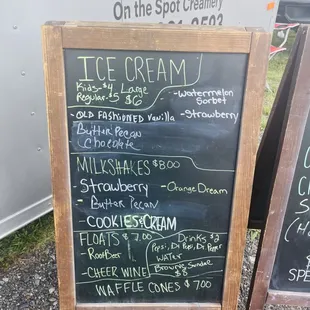 On the Spot Creamery
ICE CREAM
Kids-$4 Large
Regular-$5 $6
-Watermelon
Sorbet
-OLD FASHIONED Vanilla
-Strawberry
Butter Pecan
Chocolate
MILKSHAKES $8.00
-Strawberry
-Orange Dream
-Butter Pecan
-COOKIES & CREAM
FLOATS $7.00
-RootBeer
-CHEER WINE
Drinks $2
Pepsi, Dt Pepsi, Dr Pepper
WATER
Brownie Sundae
$8
WAFFLE CONES $7.00